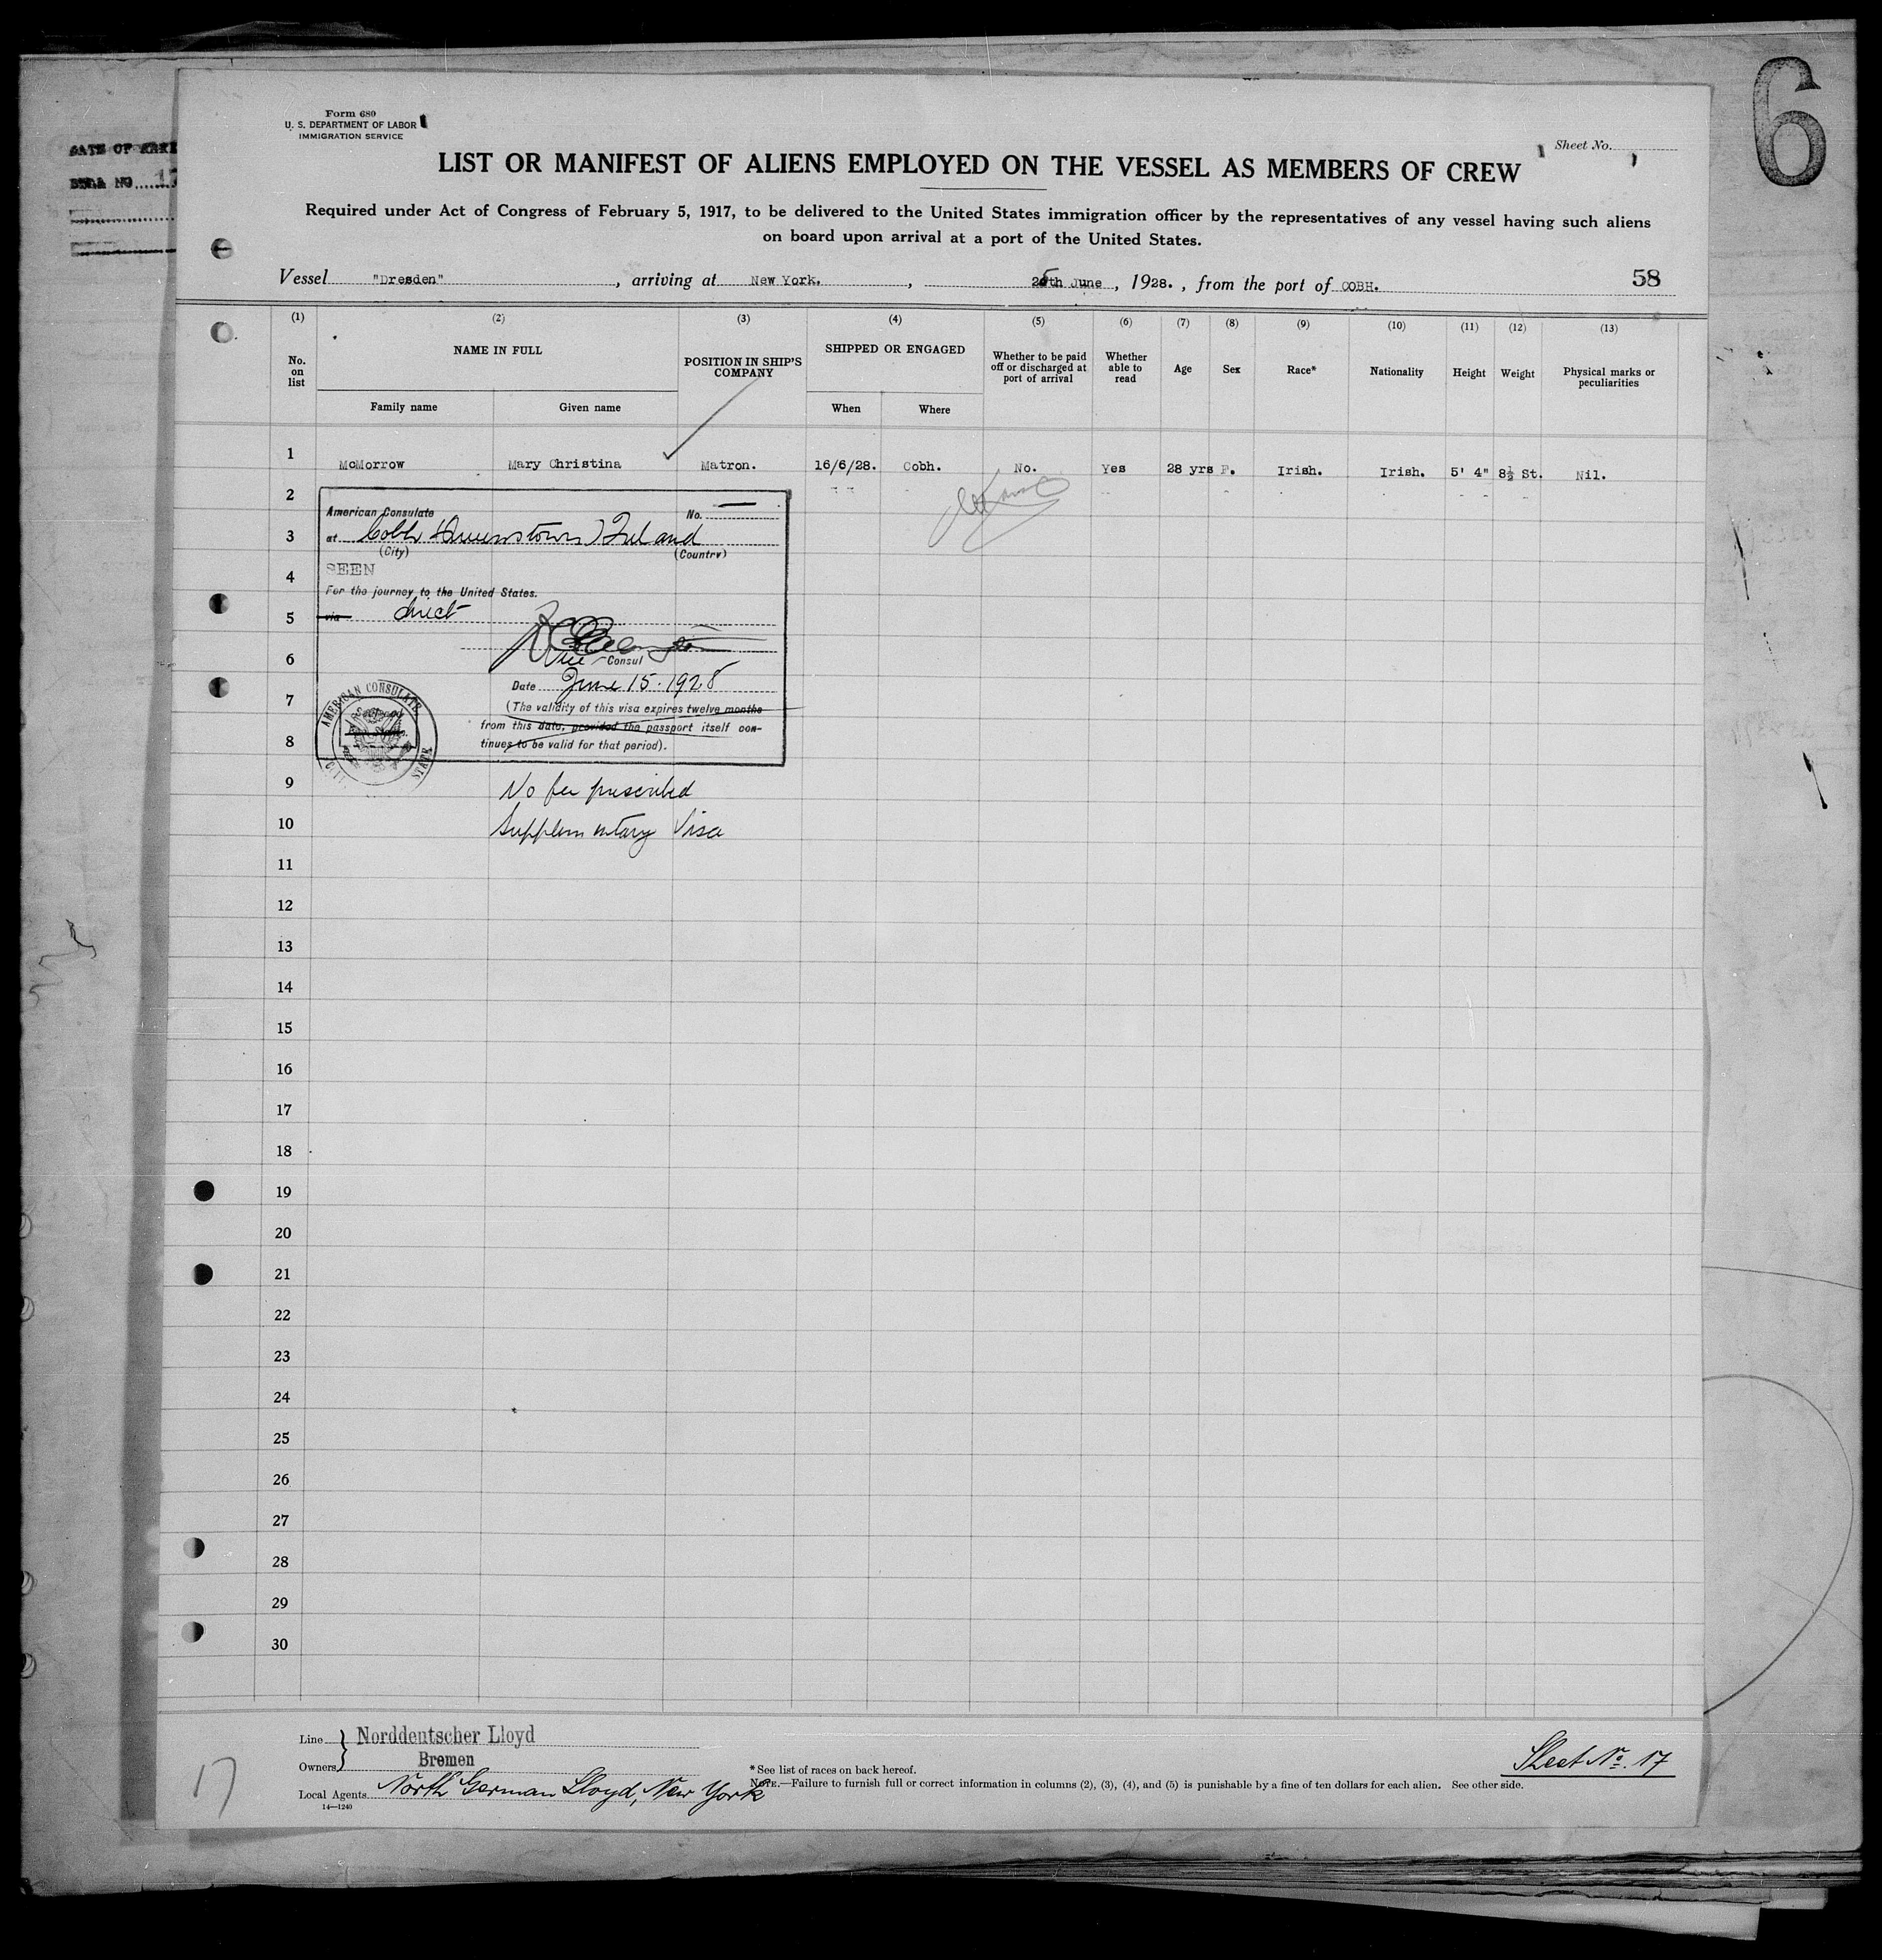 6
Form 680
U. S. DEPARTMENT OF LABOR
IMMIGRATION SERVICE
Sheet No.
LIST OR MANIFEST OF ALIENS EMPLOYED ON THE VESSEL AS MEMBERS OF CREW
Required under Act of Congress of February 5, 1917, to be delivered to the United States immigration officer by the representatives of any vessel having such aliens
on board upon arrival at a port of the United States.
Vessel "Dresden" , arriving at New York. , 25th June , 1928. , from the port of COBH. 58
(1) (2) (3) (4) (5) (6) (7) (8) (9) (10) (11) (12) (13)
No. on list
NAME IN FULL
Family name Given name
POSITION IN SHIP'S COMPANY
SHIPPED OR ENGAGED
When Where
Whether to be paid off or discharged at port of arrival
Whether able to read
Age
Sex
Race*
Nationality
Height
Weight
Physical marks or peculiarities
1 McMorrow Mary Christina Matron. 16/6/28. Cobh. No. Yes 28 yrs F. Irish. Irish. 5' 4" 8½ St. Nil.
2
American Consulate No.
3
at Cobh (Queenstown) Ireland
(City) (Country)
4
SEEN
For the journey to the United States.
5
via direct
6
Vice Consul
Date June 15. 1928
7
(The validity of this visa expires twelve months
from this date, provided the passport itself con-
8
tinues to be valid for that period).
AMERICAN CONSULATE
STATE
9
No fee prescribed
10
Supplementary Visa
11
12
13
14
15
16
17
18
19
20
21
22
23
24
25
26
27
28
29
30
Line Norddeutscher Lloyd
Owners Bremen
Local Agents North German Lloyd, New York
14—1240
*See list of races on back hereof.
NOTE.—Failure to furnish full or correct information in columns (2), (3), (4), and (5) is punishable by a fine of ten dollars for each alien. See other side.
Sheet No. 17
17